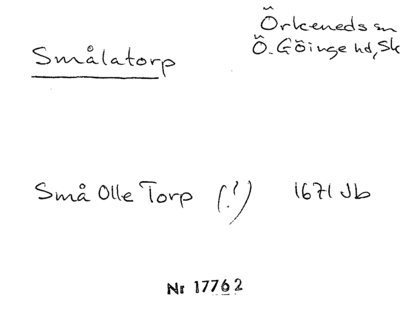 Örkeneds sn
Smålatorp
Ö. Göinge hd, Sk
Små Olle Torp (!) 1671 Jb
Nr 17762